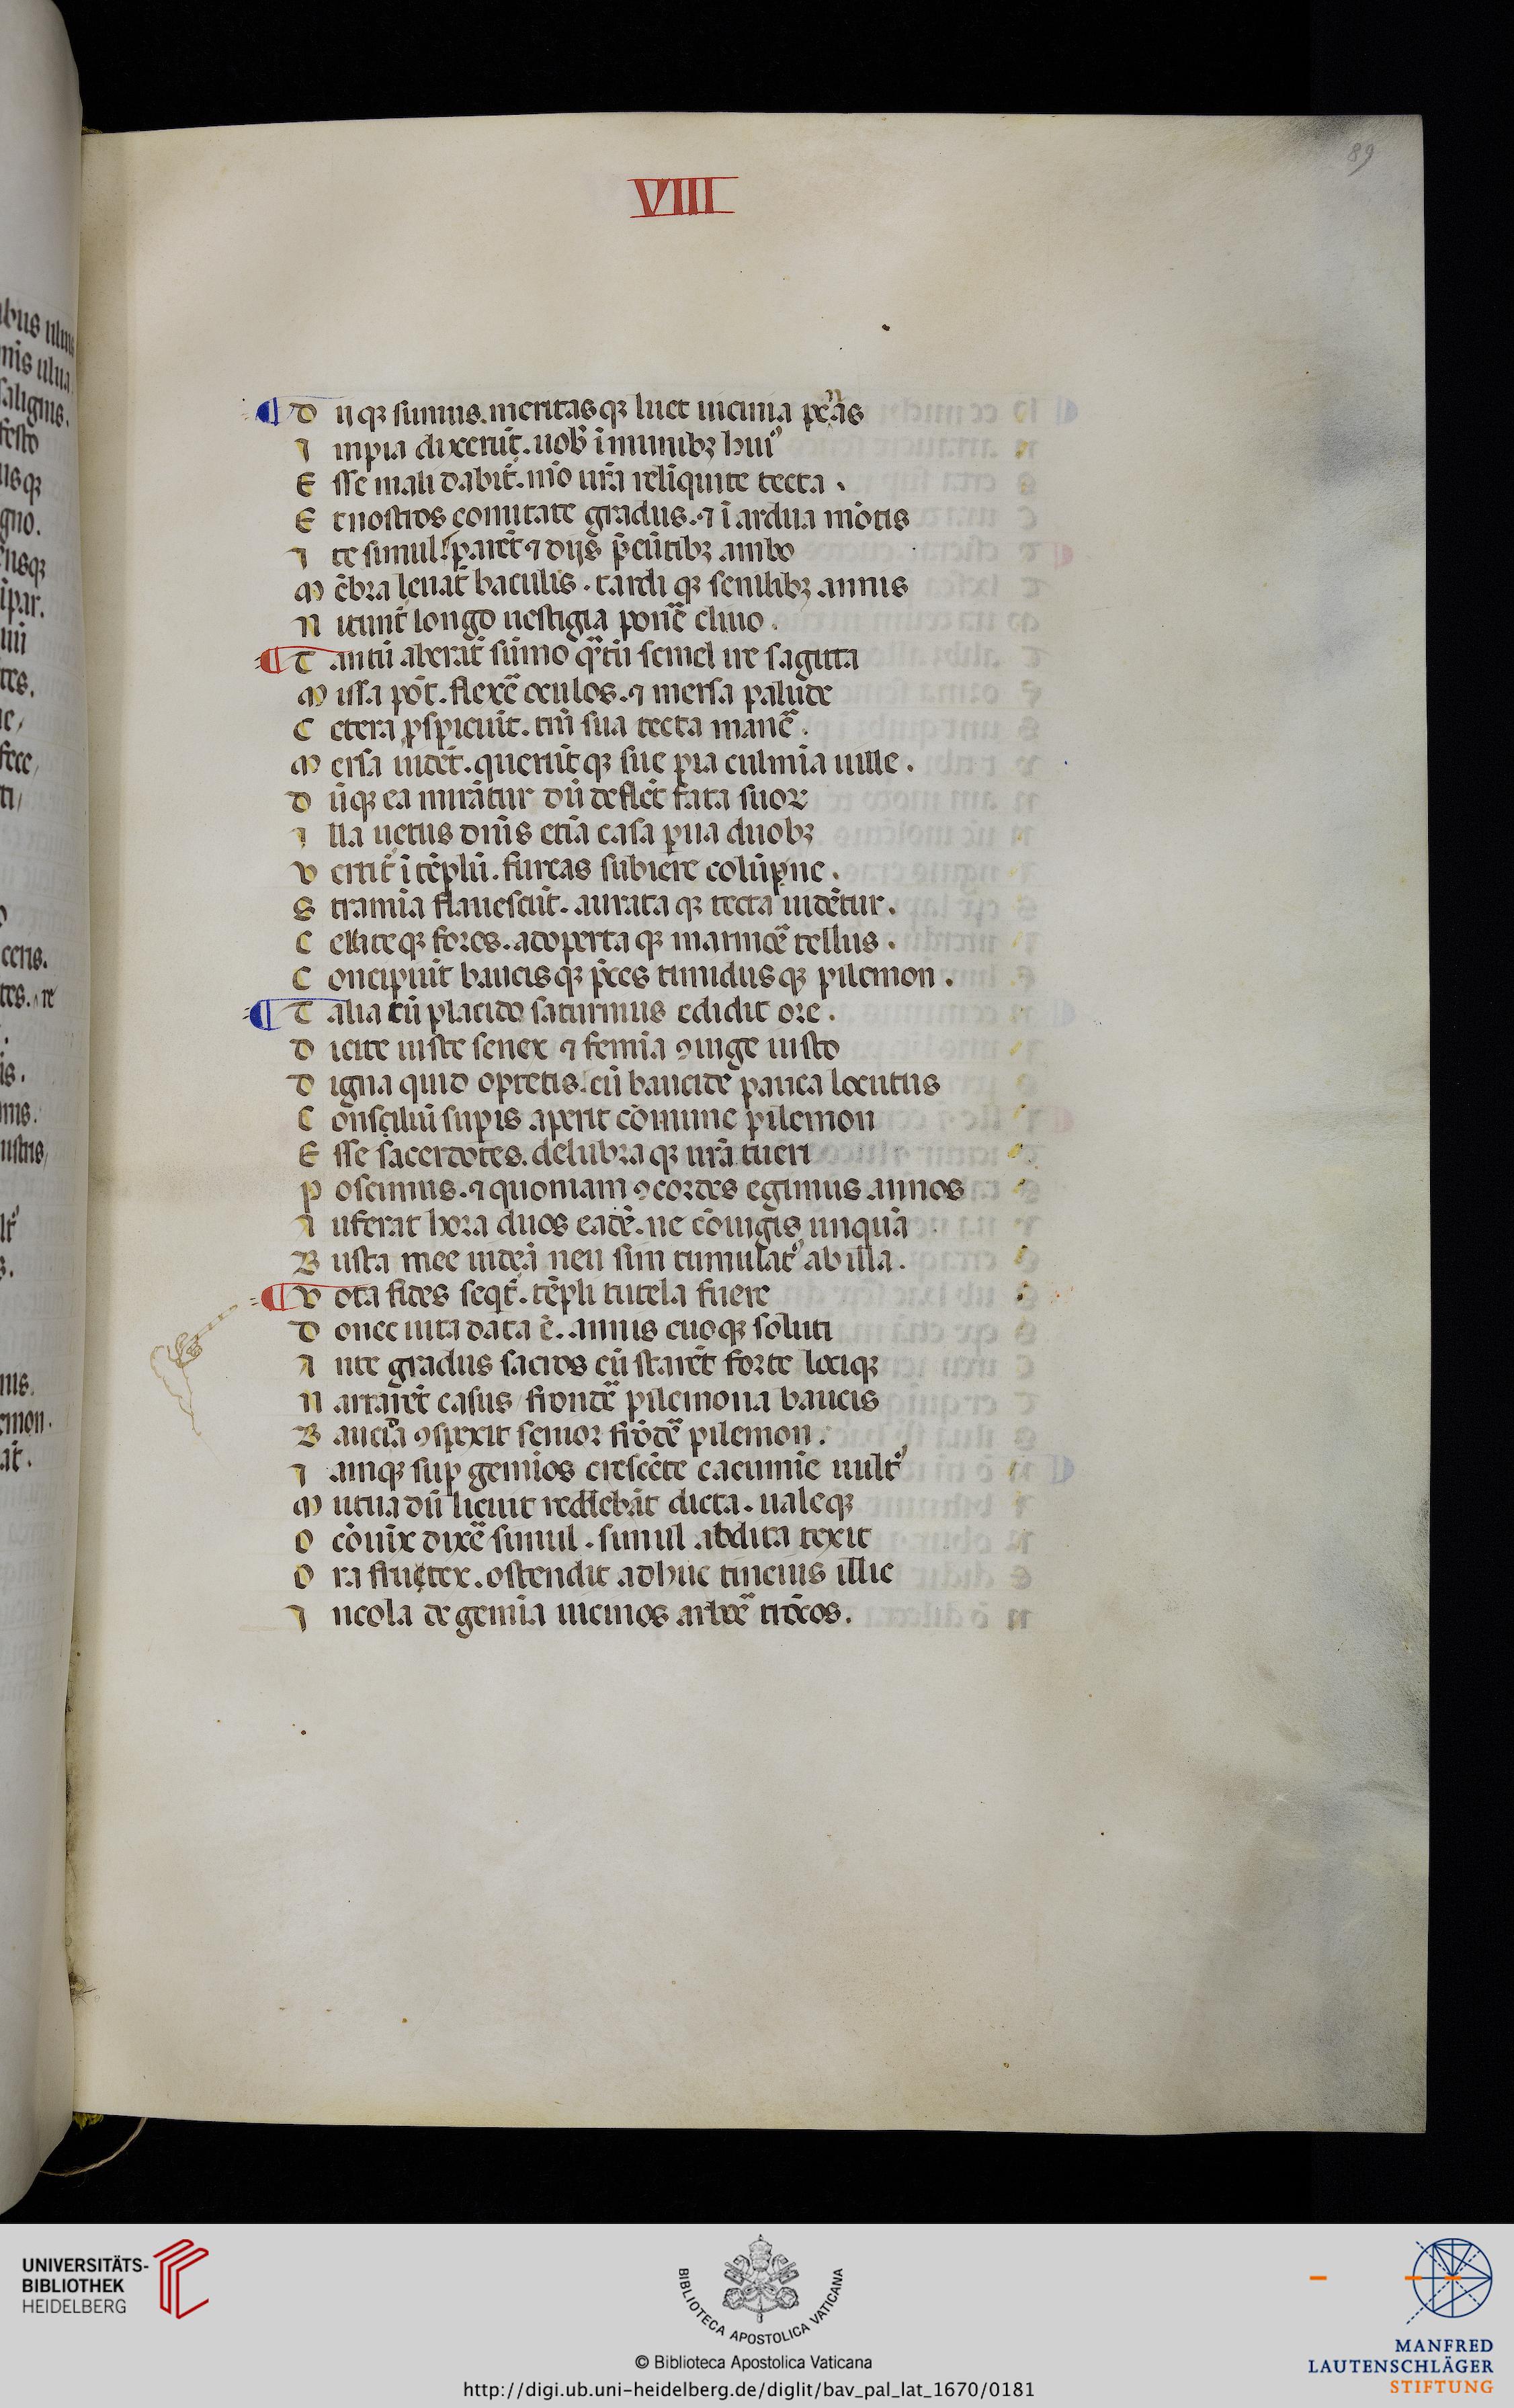 89
VIIII
D iiq; sumus. meritasq; luet uicinia penas
I mpia dixerūt. uob̄ īmunib; hui᾽
E sse mali dabit̄. mō ur̄a relinquite tecta .
E t nostros comitate gradus. ⁊ ī ardua mōtis
I te simul. parēt ⁊ dijs p̄eūtib; ambo
M ēbra leuāt baculis . tardi q; senilib; annis
N itunt̄ longo uestigia ponē cliuo .
T antū aberāt sūmo q̄tū semel ire sagitta
M issa pōt. flexē oculos. ⁊ mersa palude
C etera ꝑspiciūt. tm̄ sua tecta manē .
M ersa uidēt. querūt q; sue pia culmīa uille .
D ūq; ea mirātur dū deflēt fata suoꝝ
I lla uetus dnīs etiā casa ꝑua duob;
V ertit̄ ī tēplū. furcas subiere colūpne .
S tramīa flauescūt. aurata q; tecta uidētur .
C ellateq; fores. adoperta q; marmoē tellus .
C oncipiūt baucisq; p̄ces timidusq; pilemon .
T alia tū placido saturnius edidit ore .
D icite iuste senex ⁊ femīa ꝯiuge iusto
D igna quid optetis. cū baucide pauca locutus
C onsciliū suꝑis aperit cōmune pilemon
E sse sacerdotes. delubra q; ur̄a tueri
P oscimus. ⁊ quoniam ꝯcordes egimus annos
A uferat hora duos eadē. ne cōiugis unquā
B usta mee uideā neu sim tumulāt᾽ ab illa .
V ota fides seqt̄. tēpli tutela fuere
D onec uita data ē. annis euoq; soluti
A nte gradus sacros cū starēt forte lociq;
N arrarēt casus frondē pilemona baucis
B aucida ꝯspexit senior frōdē pilemon .
I amq; suꝑ gemīos crescēte cacumīe uult᾽
M utua dū licuit reddebāt dicta . ualeq;
O cōiux dixē simul . simul abdita texit
O ra frutex. ostendit adhuc tineius illic
I ncola de gemīa uicinos arboē trūcos .
UNIVERSITÄTS-
BIBLIOTHEK
HEIDELBERG
BIBLIOTECA APOSTOLICA VATICANA
© Biblioteca Apostolica Vaticana
http://digi.ub.uni-heidelberg.de/diglit/bav_pal_lat_1670/0181
MANFRED
LAUTENSCHLÄGER
STIFTUNG